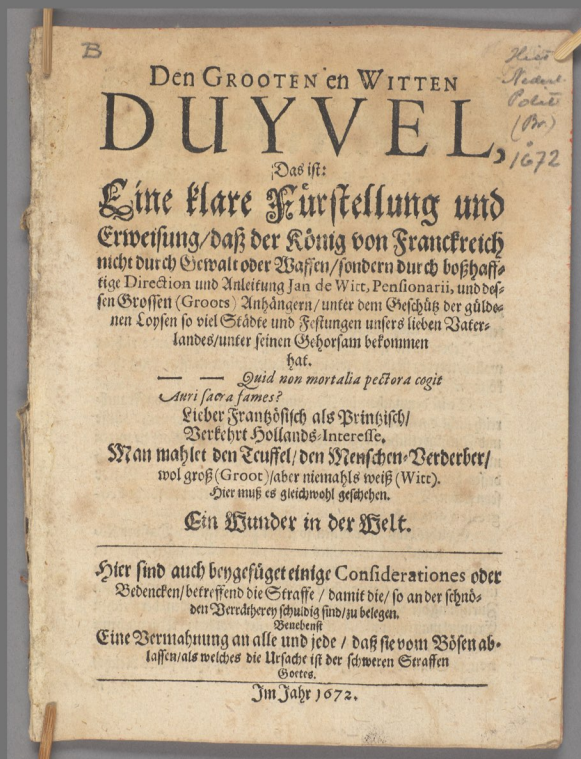 B
Hist
Nederl.
Polit
(Br.)
1672
Den GROOTEN en WITTEN
DUYVEL,
Das ist:
Eine klare Fürstellung und
Erweisung/daß der König von Franckreich
nicht durch Gewalt oder Waffen/sondern durch boßhaff-
tige Direction und Anleitung Jan de Witt, Pensionarii, und des-
sen Grossen (Groots) Anhängern/unter dem Geschütz der gülde-
nen Loysen so viel Städte und Festungen unsers lieben Vater-
landes/unter seinen Gehorsam bekommen
hat.
— — Quid non mortalia pectora cogit
Auri sacra fames?
Lieber Frantzösisch als Printzisch/
Verkehrt Hollands-Interesse.
Man mahlet den Teuffel/den Menschen-Verderber/
wol groß (Groot)/aber niemahls weiß (Witt).
Hier muß es gleichwohl geschehen.
Ein Wunder in der Welt.
Hier sind auch beygefüget einige Considerationes oder
Bedencken/betreffend die Straffe / damit die/ so an der schnö-
den Verrätherey schuldig sind/zu belegen.
Benebenst
Eine Vermahnung an alle und jede / daß sie vom Bösen ab-
lassen/als welches die Ursache ist der schweren Straffen
Gottes.
Im Jahr 1672.